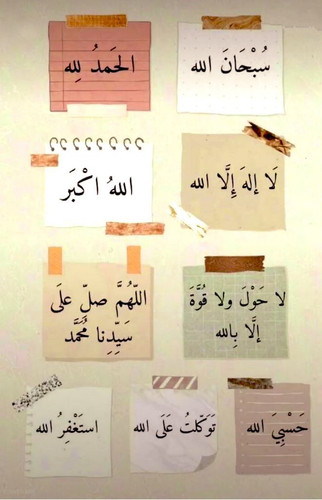 سُبْحَانَ الله
الحَمدُ لِله
لَا إلهَ إِلَّا الله
اللهُ اكْبَر
لا حَوْلَ ولا قُوَّةَ
إلَّا بِالله
اللّهُمَّ صلِّ علَى
سَيِّدِنا مُحَمَّد
حَسْبِيَ الله
تَوَكّلتُ عَلَى الله
استَغْفِرُ الله